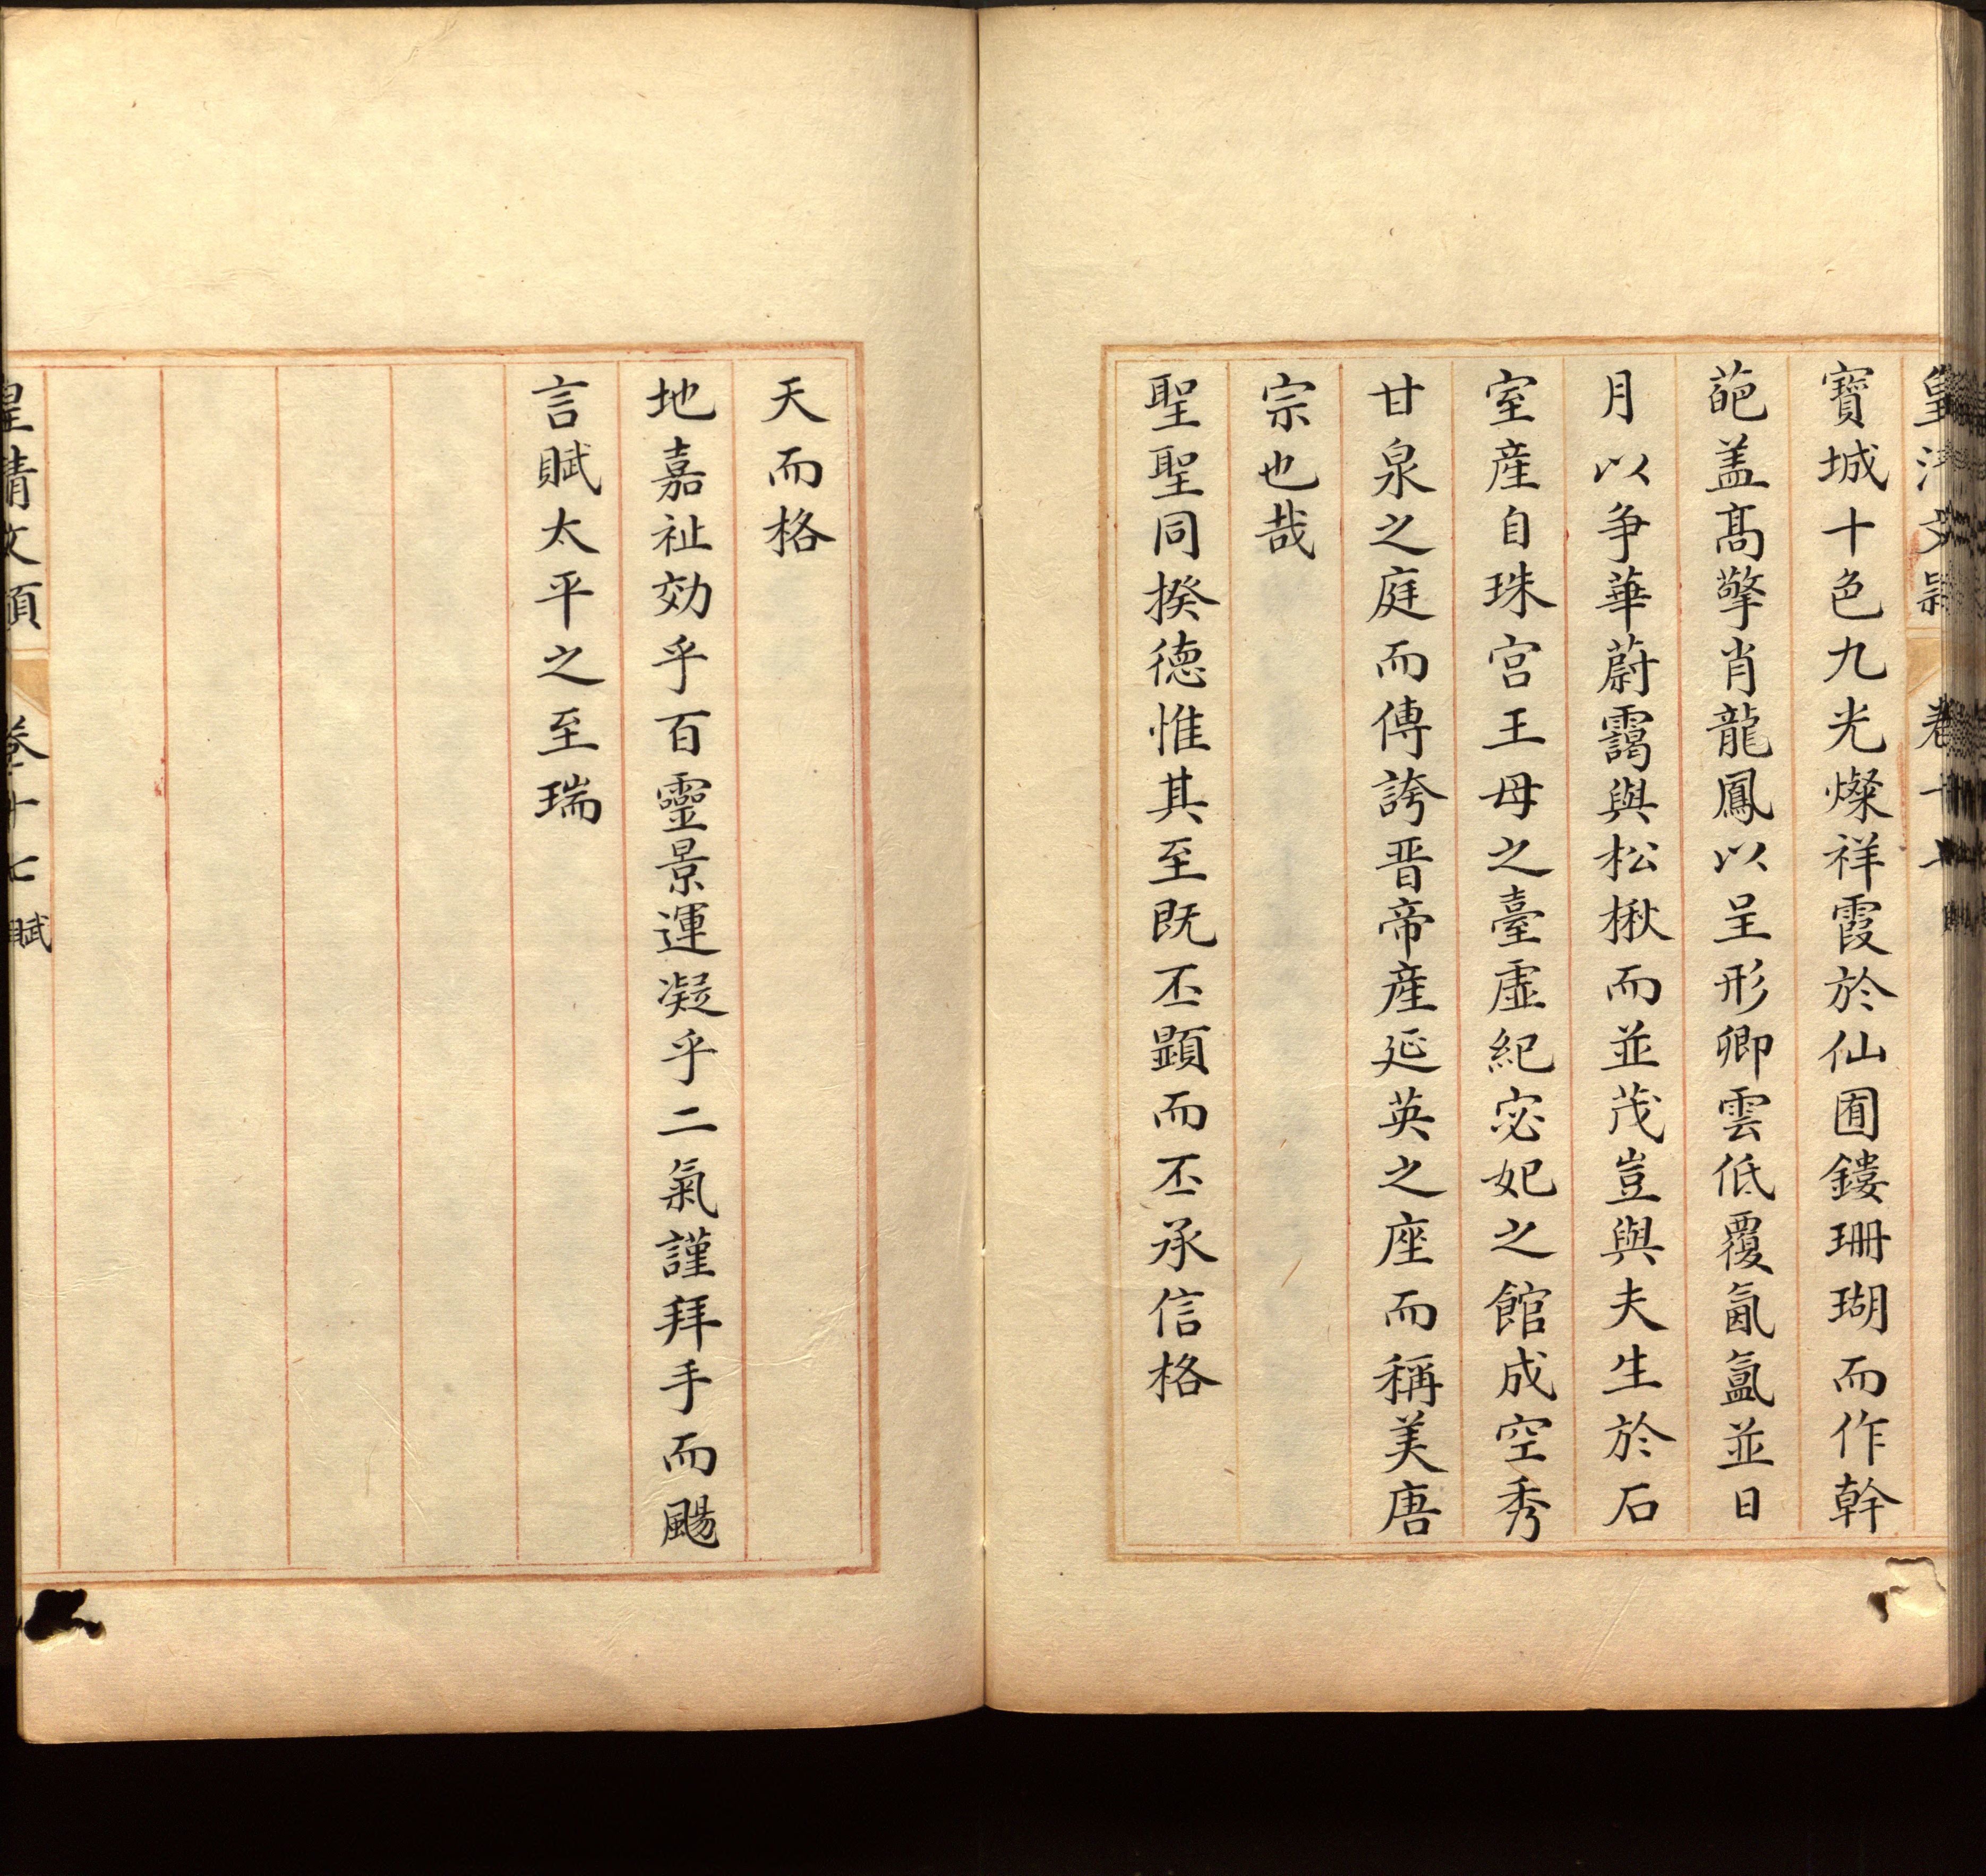 寶城十色九光燦祥霞於仙囿鏤珊瑚而作幹
葩盖髙擎肖龍鳳以呈形卿雲低覆氤氲並日
月以争華蔚靄與松楸而並茂豈與夫生於石
室産自珠宫王母之臺虚紀宓妃之館成空秀
甘泉之庭而傳誇晋帝産延英之座而稱美唐
宗也哉
聖聖同揆徳惟其至既丕顕而丕承信格
天而格
地嘉祉効乎百靈景運凝乎二氣謹拜手而颺
言賦太平之至瑞
皇清文穎 卷十七 賦